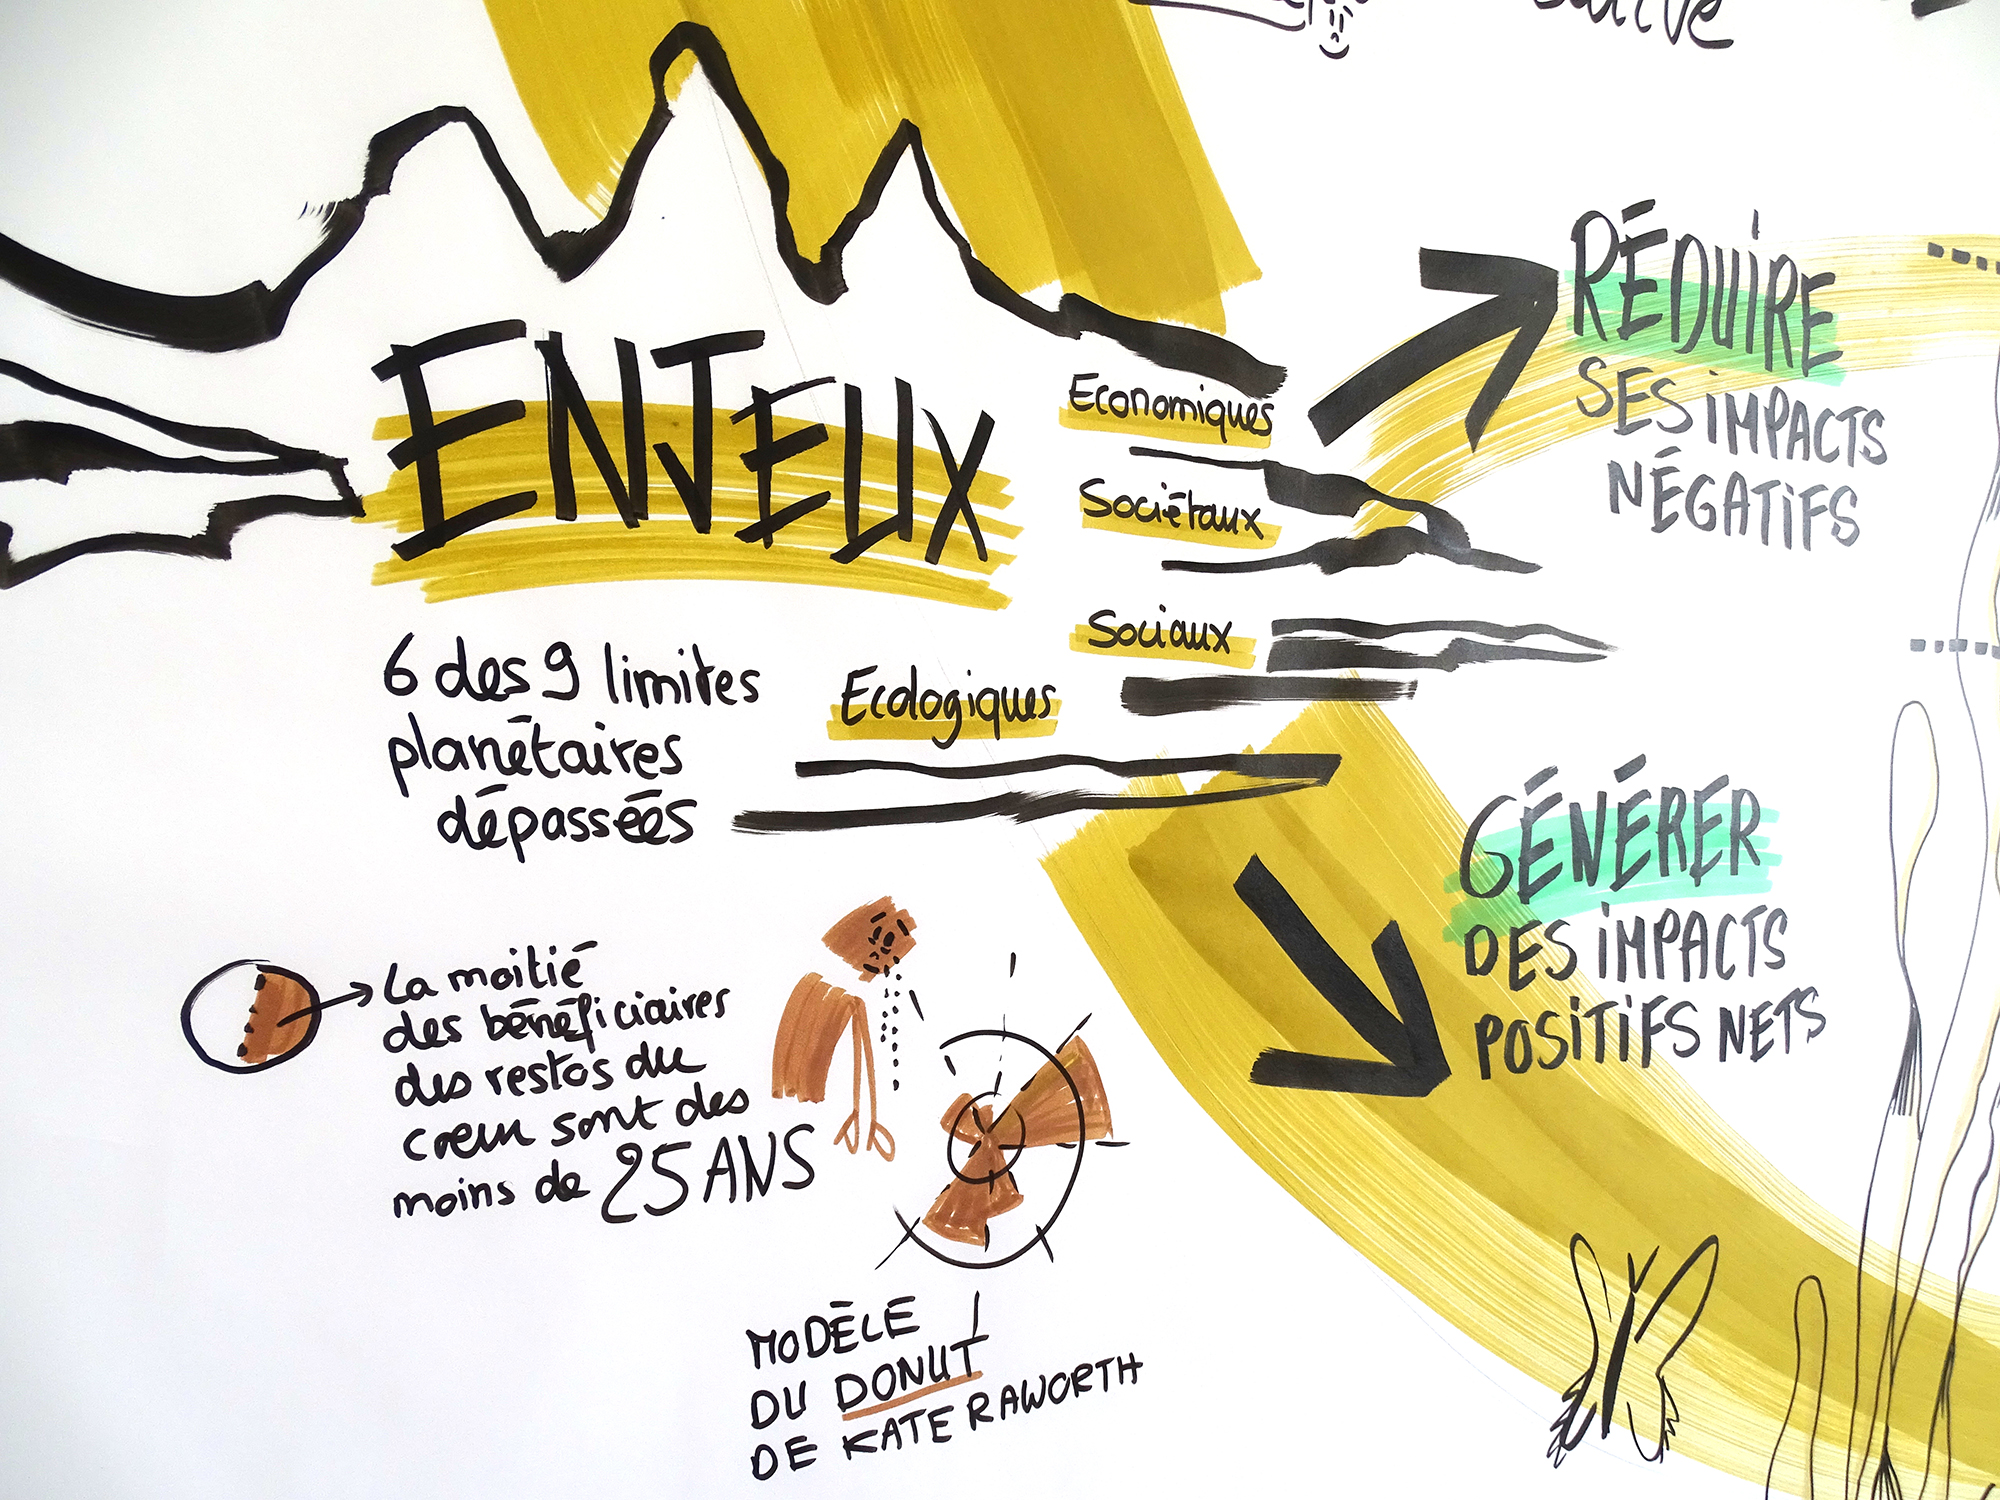 ENJEUX
Economiques
Sociétaux
Sociaux
Ecologiques
6 des 9 limites
planétaires
dépassées
La moitié
des bénéficiaires
des restos du
cœur sont des
moins de 25 ANS
MODÈLE
DU DONUT
DE KATE RAWORTH
RÉDUIRE
SES IMPACTS
NÉGATIFS
GÉNÉRER
DES IMPACTS
POSITIFS NETS